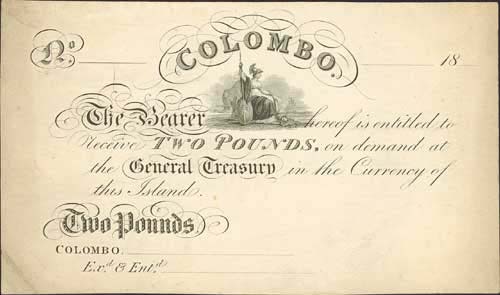 COLOMBO.
No. 18
The Bearer hereof is entitled to
Receive TWO POUNDS, on demand at
the General Treasury in the Currency of
this Island.
Two Pounds.
COLOMBO.
Ex.d & Ent.d